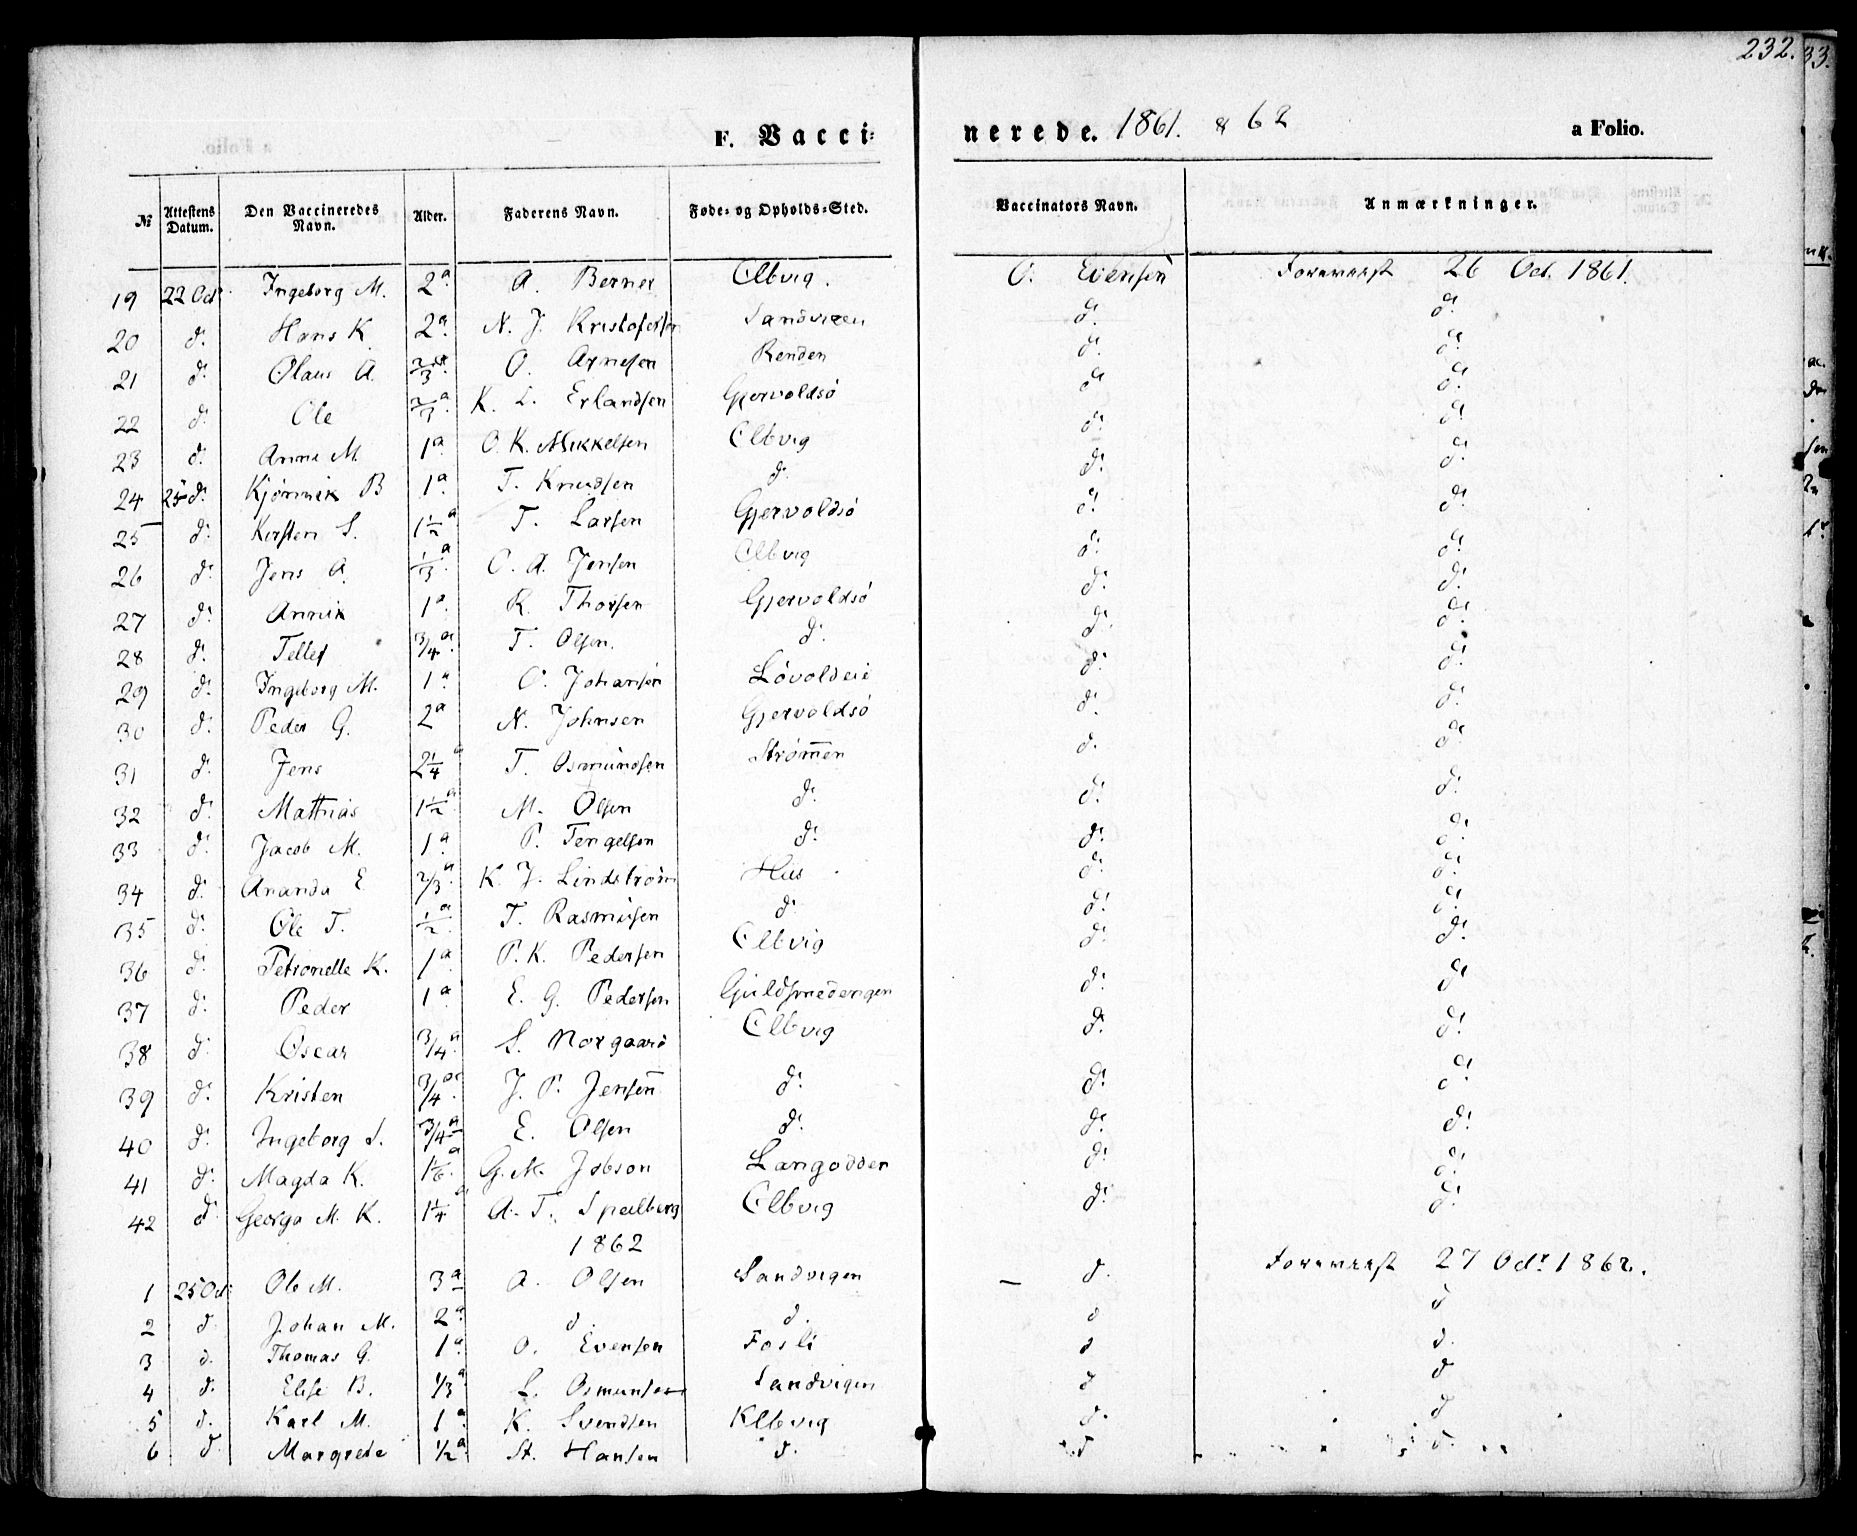 232. 33.
F. Vacci= nerede. 1861. & 62 a Folio.
№ Attestens Datum. Den Vaccineredes Navn. Alder. Faderens Navn. Føde= og Opholds=Sted. Vaccinators Navn. Anmærkninger.
19 22 Oct. Ingeborg M. 2 a A. Berner Elbvig. O. Evensen Foreverst 26 Oct. 1861.
20 d: Hans K. 2 a. N. J. Kristofersen Sandvigen d: d:
21 d: Olaus A. 2/3 a O. Arnesen Renden d: d:
22 d: Ole 2/3 a. K. L. Erlandsen Gjervoldsø d: d:
23 d: Anne M. 1 a O. K. Mikkelsen Elbvig d: d:
24 25 d: Kjørmik B 1 a. T. Knudsen d: d: d:
25 d: Kirsten S. 1 1/2 a T. Larsen Gjervoldsø d: d:
26 d: Jens A. 1/3 a. O. A. Jensen Elbvig d: d:
27 d: Annik 1 a. K. Thorsen Gjervoldsø d: d:
28 d: Tellef 3/4 a. T. Olsen. d: d: d:
29 d: Ingeborg M. 1 a. O. Johansen Løvoldeie d: d:
30 d: Peder G. 2 a N. Johnsen Gjervoldsø d: d:
31 d: Jens 2 1/4 a T. Osmundsen Strømmen d: d:
32 d: Mathias 1 1/2 a. M. Olsen d: d: d:
33 d: Jacob M. 1 a. P. Tengelsen d: d: d:
34 d: Ananda E 2/3 a. K. J. Lindstrøm Hus d: d:
35 d: Ole T. 1/2 a. T. Rasmusen d: d: d:
36 d: Petronelle K. 1 a. P. K. Pedersen Elbvig d: d:
37 d: Peder 1 a. E. G. Pedersen Guldsmedengen d: d:
38 d: Oscar 3/4 a. S. Norgaard Elbvig d: d:
39 d: Kristen 3/4 a. J. P. Jensen d: d: d:
40 d: Ingeborg S. 3/4 a E. Olsen d: d: d:
41 d: Magda K. 1/6 a. G. M. Jebson Langodden d: d:
42 d: Georga M. K. 1 1/4 a A. T. Spilberg Elbvig d: d:
1862
1 25 Oct Ole M. 3 a A. Olsen Sandvigen — d. Foreverst 27 Oct. 1862.
2 d. Johan M. 2 a. d. d. d d
3 d. Thomas G. 1 a. O. Evensen Fosli d d.
4 d. Elise B. 1/3 a. L. Osmundsen Sandvigen d d
5 d. Karl M. 1 a. K. Svendsen Klbvig d. d
6 d. Margrete 1/2 a. St. Hansen d. d d.